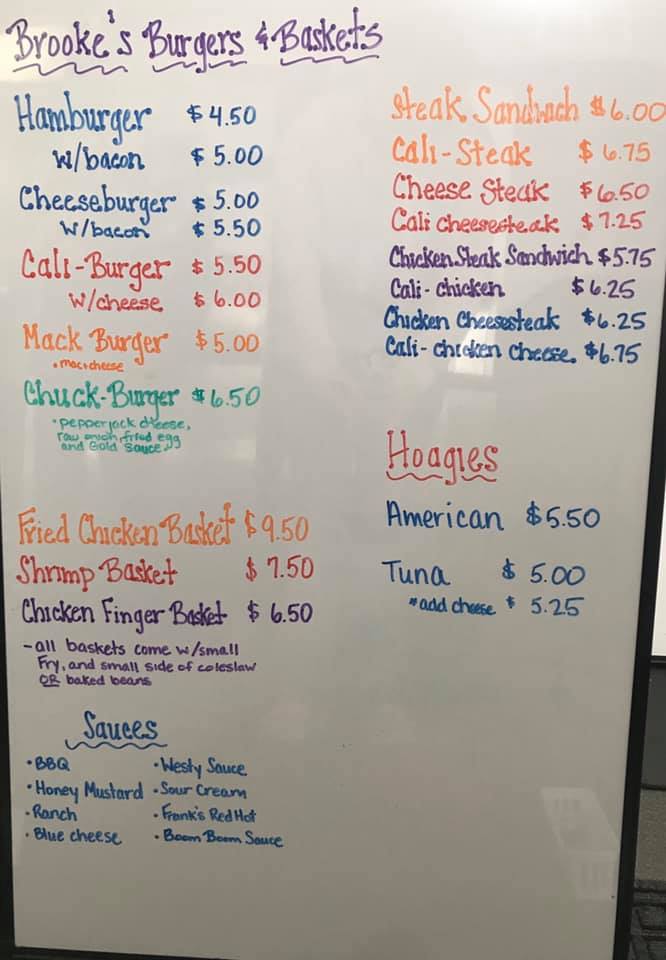 Brooke's Burgers & Baskets
Hamburger $4.50
w/bacon $5.00
Cheeseburger $5.00
w/bacon $5.50
Cali-Burger $5.50
w/cheese $6.00
Mack Burger $5.00
• mac+cheese
Chuck-Burger $6.50
• pepperjack cheese,
raw onion, fried egg
and Gold Sauce
Fried Chicken Basket $9.50
Shrimp Basket $7.50
Chicken Finger Basket $6.50
- all baskets come w/small
Fry, and small side of coleslaw
OR baked beans
Sauces
• BBQ
• Honey Mustard
• Ranch
• Blue cheese
• Westy Sauce
• Sour Cream
• Frank's Red Hot
• Boom Boom Sauce
Steak Sandwich $6.00
Cali-Steak $6.75
Cheese Steak $6.50
Cali cheesesteak $7.25
Chicken Steak Sandwich $5.75
Cali-chicken $6.25
Chicken Cheesesteak $6.25
Cali-chicken cheese. $6.75
Hoagies
American $5.50
Tuna $5.00
*add cheese $5.25